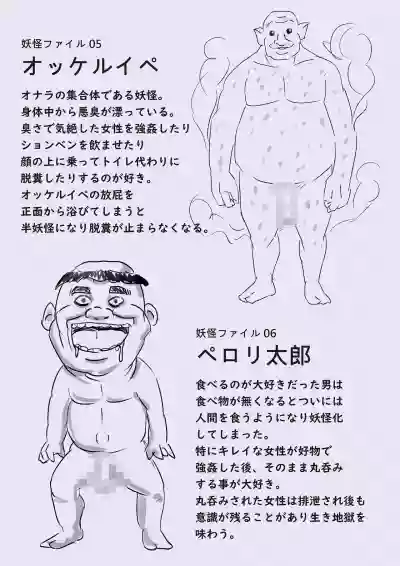 妖怪ファイル 05
オッケルイペ
オナラの集合体である妖怪。
身体中から悪臭が漂っている。
臭さで気絶した女性を強姦したり
ションベンを飲ませたり
顔の上に乗ってトイレ代わりに
脱糞したりするのが好き。
オッケルイペの放屁を
正面から浴びてしまうと
半妖怪になり脱糞が止まらなくなる。
妖怪ファイル 06
ペロリ太郎
食べるのが大好きだった男は
食べ物が無くなるとついには
人間を食うようになり妖怪化
してしまった。
特にキレイな女性が好物で
強姦した後、そのまま丸呑み
する事が大好き。
丸呑みされた女性は排泄され後も
意識が残ることがあり生き地獄を
味わう。